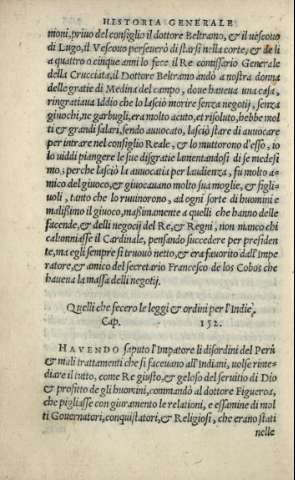 HISTORIA GENERALE
moni, priuo del consiglio il dottore Beltrano, & il uescouo
di Lugo, il Vescouo perseuerò di starsi nella corte, & de li
a quattro o cinque anni lo fece il Re comissario Generale
della Crucciata, il Dottore Beltramo andò a nostra donna
delle gratie di Medina del campo, doue haueua una casa,
ringratiaua Iddio che lo lasciò morire senza negotij, senza
giuochi, ne garbugli, era molto acuto, et risoluto, hebbe mol
ti & grandi salari, sendo auuocato, lasciò stare di auuocare
per intrare nel consiglio Reale, & lo muttorono d'esso, io
lo uiddi piangere le sue disgratie lamentandosi di se medesi
mo, perche lasciò la auuocatia per laudienza, fu molto a-
mico del giuoco, & giuocauano molto sua moglie, & figli-
uoli, tanto che lo ruuinorono, ad ogni sorte di huomini e
malissimo il giuoco, massimamente a quelli che hanno delle
facende, & delli negocij del Re, & Regni, non manco chi
calonniasse il Cardinale, pensando succedere per presiden
te, ma egli sempre si truouò netto, & era fauorito dall'Impe
ratore, & amico del secretario Francesco de los Cobos che
haueua la massa delli negotij.
Quelli che fecero le leggi & ordini per l'Indie,
Cap. 152.
HAVENDO saputo l'Impatore li disordini del Perù
& mali trattamenti che si faceuano all'Indiani, uolse rime-
diare il tutto, come Re giusto, & geloso del seruitio di Dio
& profitto de gli huomini, commandò al dottore Figueroa,
che pigliasse con giuramento le relationi, e essamine di mol
ti Gouernatori, conquistatori, & Religiosi, che erano stati
nelle